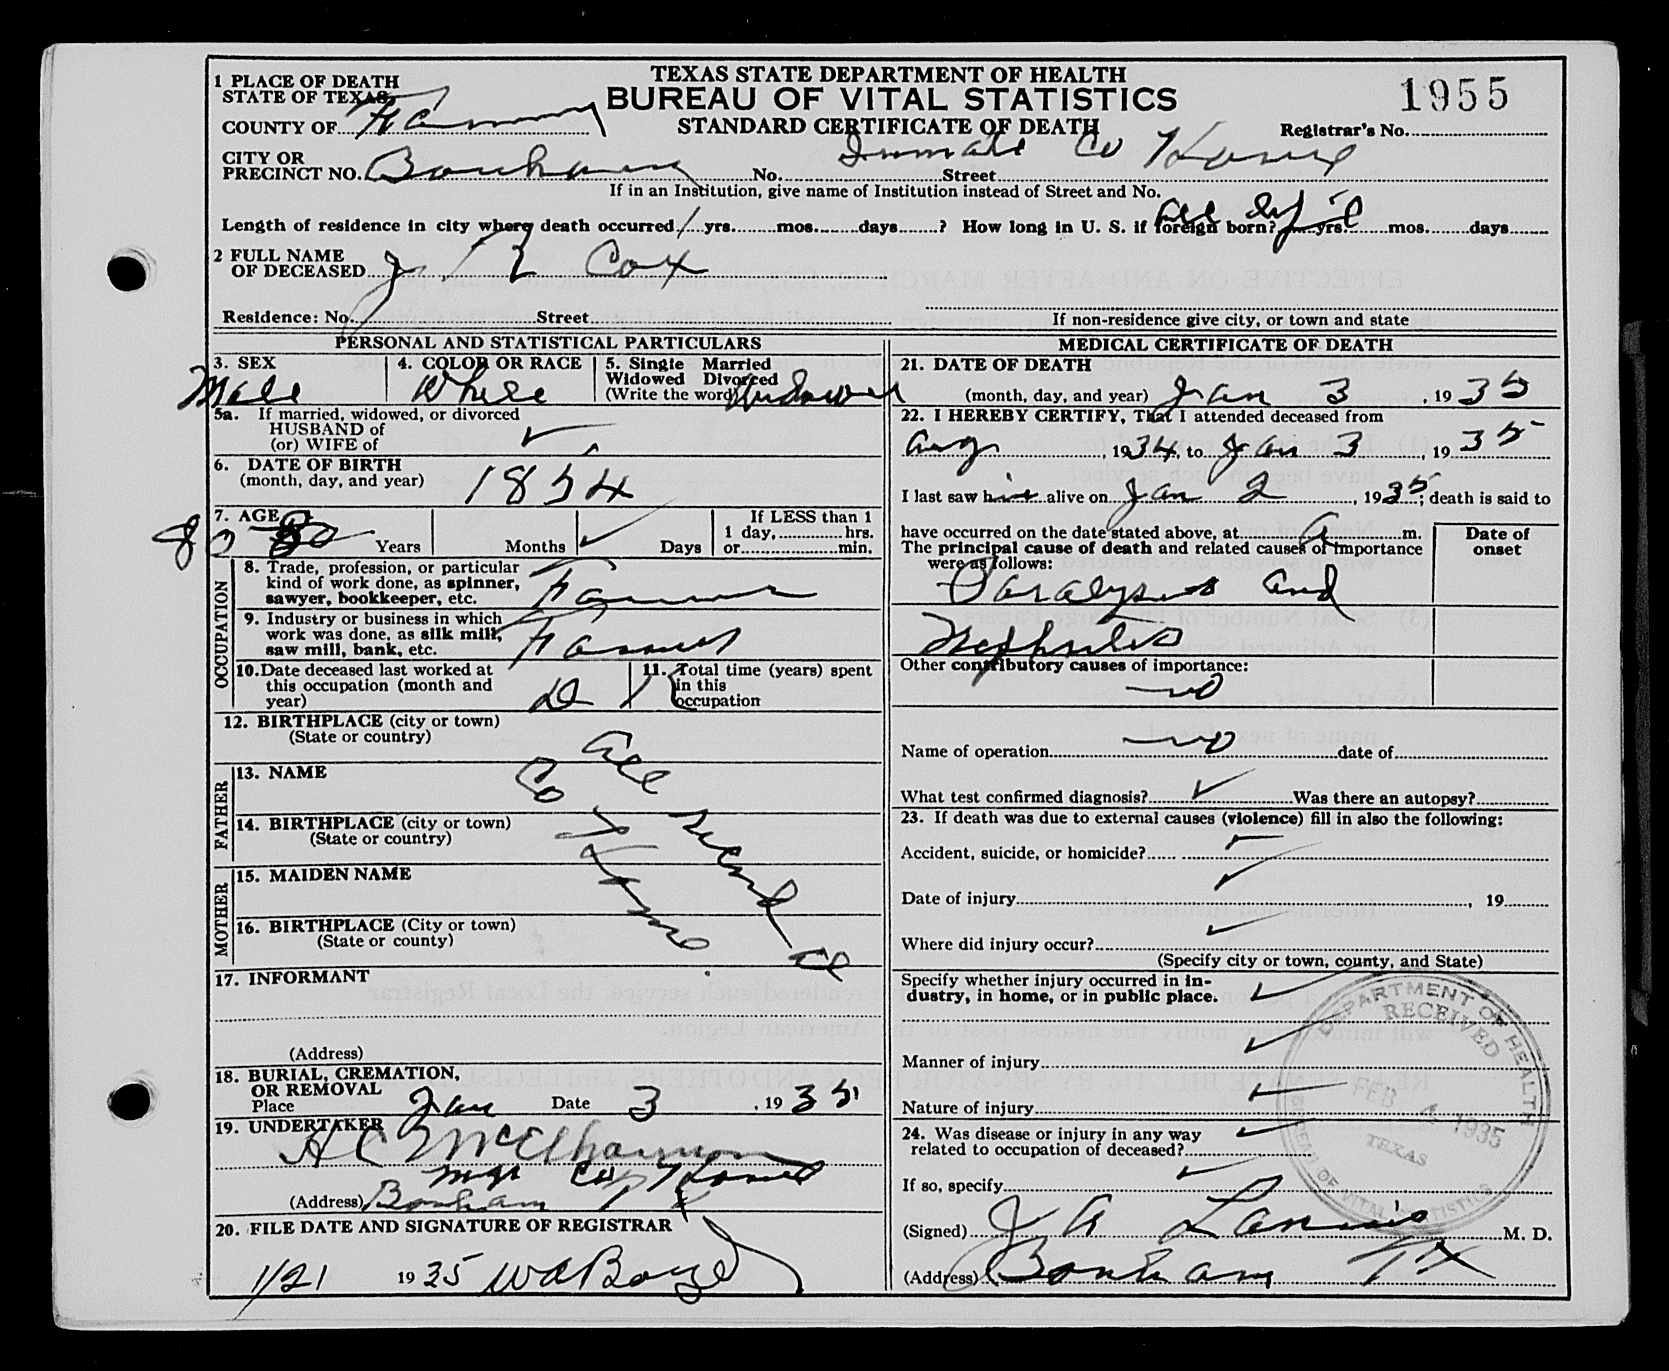 TEXAS STATE DEPARTMENT OF HEALTH
BUREAU OF VITAL STATISTICS
STANDARD CERTIFICATE OF DEATH
1955
Registrar's No.
1 PLACE OF DEATH
STATE OF TEXAS
COUNTY OF Fannin
CITY OR
PRECINCT NO. Bonham No. Street Inmate Co Home
If in an Institution, give name of Institution instead of Street and No.
Length of residence in city where death occurred 1 yrs. mos. days ? How long in U. S. if foreign born? yrs. mos. days All life
2 FULL NAME
OF DECEASED J Cox
Residence: No. Street
If non-residence give city, or town and state
PERSONAL AND STATISTICAL PARTICULARS
3. SEX
Male
4. COLOR OR RACE
White
5. Single Married
Widowed Divorced
(Write the word) Widower
5a. If married, widowed, or divorced
HUSBAND of
(or) WIFE of
6. DATE OF BIRTH
(month, day, and year) 1854
7. AGE
80 80 Years Months Days
If LESS than 1
1 day, hrs.
or min.
OCCUPATION
8. Trade, profession, or particular
kind of work done, as spinner,
sawyer, bookkeeper, etc. Farmer
9. Industry or business in which
work was done, as silk mill,
saw mill, bank, etc. Farmer
10. Date deceased last worked at
this occupation (month and
year)
11. Total time (years) spent
in this
occupation
12. BIRTHPLACE (city or town)
(State or country)
FATHER
13. NAME
14. BIRTHPLACE (city or town)
(State or country)
MOTHER
15. MAIDEN NAME
16. BIRTHPLACE (City or town)
(State or county)
All record at
Co Home
17. INFORMANT
(Address)
18. BURIAL, CREMATION,
OR REMOVAL
Place Date Jan 3, 1935
19. UNDERTAKER
H C McElhannon
Mgr Co Home
(Address) Bonham Tx
20. FILE DATE AND SIGNATURE OF REGISTRAR
1/21 1935
MEDICAL CERTIFICATE OF DEATH
21. DATE OF DEATH
(month, day, and year) Jan 3, 1935
22. I HEREBY CERTIFY, That I attended deceased from
Aug, 1934, to Jan 3, 1935
I last saw him alive on Jan 2, 1935; death is said to
have occurred on the date stated above, at A m.
The principal cause of death and related causes of importance
were as follows:
Date of
onset
Paralysis and
Nephritis
Other contributory causes of importance:
no
Name of operation no date of
What test confirmed diagnosis? Was there an autopsy?
23. If death was due to external causes (violence) fill in also the following:
Accident, suicide, or homicide?
Date of injury, 19
Where did injury occur?
(Specify city or town, county, and State)
Specify whether injury occurred in in-
dustry, in home, or in public place.
Manner of injury
Nature of injury
24. Was disease or injury in any way
related to occupation of deceased?
If so, specify
(Signed) J A M. D.
(Address) Bonham Tx
DEPARTMENT OF HEALTH
RECEIVED
FEB 4 1935
TEXAS
BUREAU OF VITAL STATISTICS